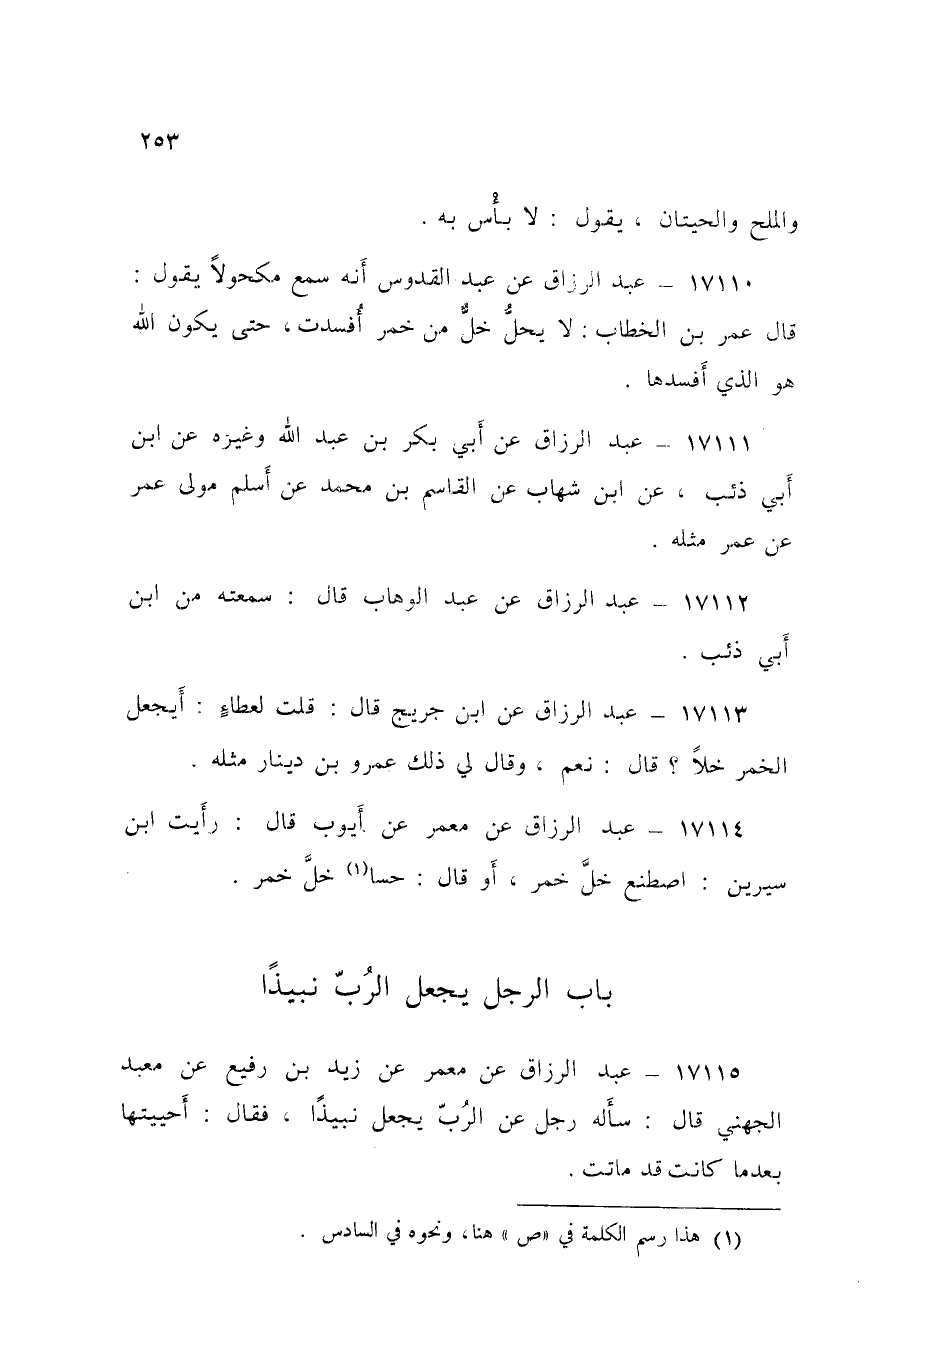 ٢٥٣
والملح والحيتان ، يقول : لا بأُس به .
١٧١١٠ – عبد الرزاق عن عبد القدوس أَنه سمع مكحولاً يقول :
قال عمر بن الخطاب : لا يحلُّ خلٌّ من خمر أُفسدت ، حتى يكون الله
هو الذي أَفسدها .
١٧١١١ – عبد الرزاق عن أَبي بكر بن عبد الله وغيره عن ابن
أَبي ذئب ، عن ابن شهاب عن القاسم بن محمد عن أَسلم مولى عمر
عن عمر مثله .
١٧١١٢ – عبد الرزاق عن عبد الوهاب قال : سمعته من ابن
أَبي ذئب .
١٧١١٣ – عبد الرزاق عن ابن جريج قال : قلت لعطاءٍ : أَيجعل
الخمر خلاًّ ؟ قال : نعم ، وقال لي ذلك عمرو بن دينار مثله .
١٧١١٤ – عبد الرزاق عن معمر عن أَيوب قال : رأَيت ابن
سيرين : اصطنع خلَّ خمر ، أَو قال : حسا(١) خلَّ خمر .
باب الرجل يجعل الرُبّ نبيذًا
١٧١١٥ – عبد الرزاق عن معمر عن زيد بن رفيع عن معبد
الجهني قال : سأَله رجل عن الرُبّ يجعل نبيذًا ، فقال : أَحييتها
بعدما كانت قد ماتت .
(١) هذا رسم الكلمة في «ص» هنا، ونحوه في السادس .